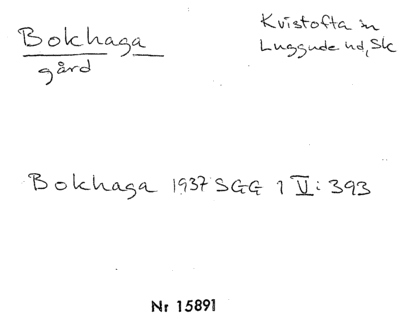 Bokhaga
gård
Kvistofta sn
Luggude hd, Sk
Bokhaga 1937 SGG 1 V: 393
Nr 15891